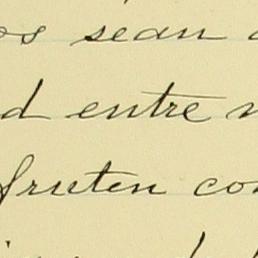 os sean
d entre
fruten con